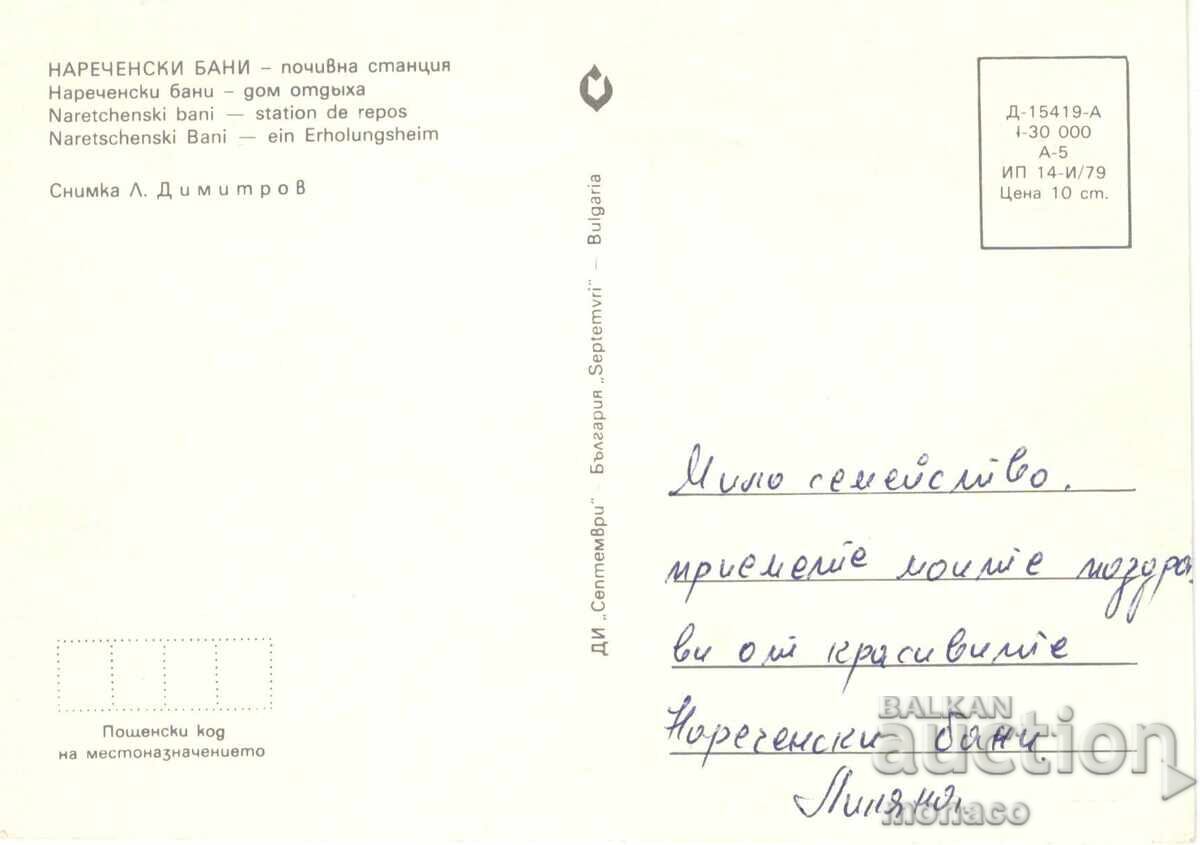 НАРЕЧЕНСКИ БАНИ – почивна станция
Нареченски бани – дом отдыха
Naretchenski bani — station de repos
Naretschenski Bani — ein Erholungsheim
Снимка Л. Димитров
ДИ „Септември" – България „Septemvri" – Bulgaria
Д-15419-А
I-30 000
А-5
ИП 14-И/79
Цена 10 ст.
Мило семейство,
приемете моите поздра
ви от красивите
Нареченски бани.
Лиляна.
Пощенски код
на местоназначението
BALKAN
auction
monaco